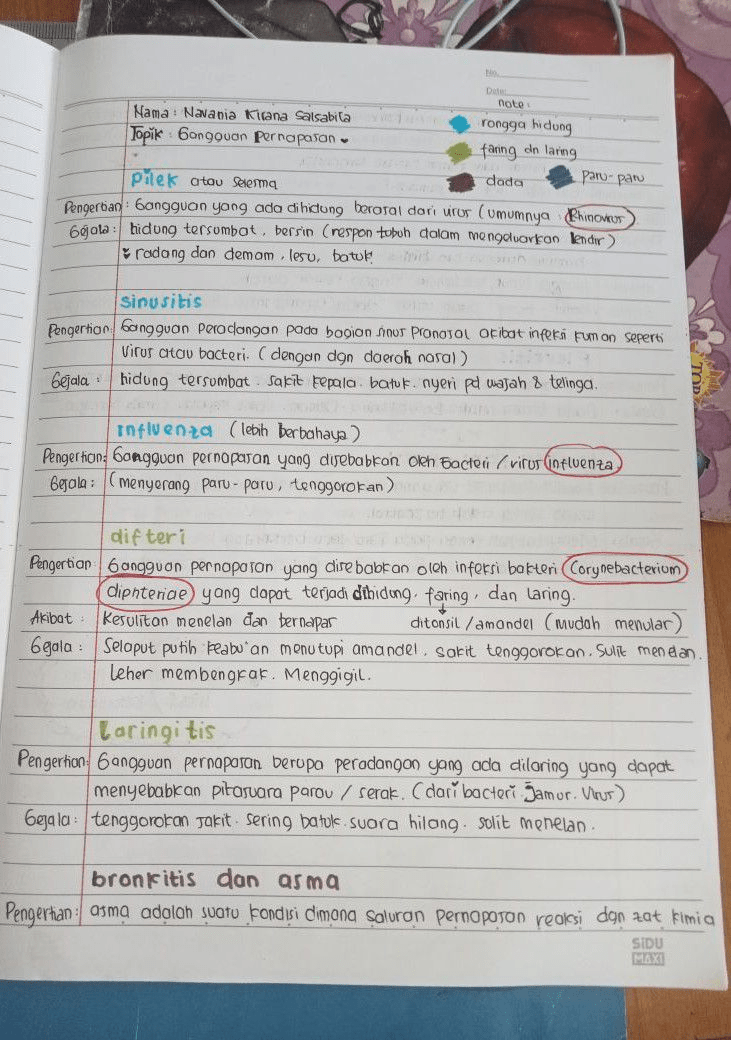 No.
Date:
note:
Nama : Navania Kirana Salsabila
rongga hidung
Topik : Gangguan Pernapasan
faring dn laring
Pilek atau selesma
dada
paru-paru
Pengertian : Gangguan yang ada dihidung berasal dari virus (umumnya : Rhinovirus)
Gejala : hidung tersumbat, bersin (respon tubuh dalam mengeluarkan lendir)
radang dan demam, lesu, batuk.
Sinusitis
Pengertian: Gangguan Peradangan pada bagian sinus Pranasal akibat infeksi kuman seperti
virus atau bacteri. (dengan dgn daerah nasal)
Gejala : hidung tersumbat. sakit kepala. batuk. nyeri pd wajah & telinga.
Influenza (lebih berbahaya)
Pengertian: Gangguan pernapasan yang disebabkan oleh Bacteri / virus influenza
Gejala : (menyerang paru-paru, tenggorokan)
difteri
Pengertian Gangguan pernapasan yang disebabkan oleh infeksi bakteri Corynebacterium
diphteriae yang dapat terjadi dihidung, faring, dan laring.
Akibat : Kesulitan menelan dan bernapas ditonsil/amandel (mudah menular)
Gejala : Selaput putih keabu'an menutupi amandel. sakit tenggorokan. Sulit menelan.
Leher membengkak. Menggigil.
Laringitis
Pengertian: Gangguan pernapasan berupa peradangan yang ada dilaring yang dapat
menyebabkan pitasuara parau / serak. (dari bacteri. Jamur. Virus)
Gejala : tenggorokan sakit. sering batuk. suara hilang. sulit menelan.
bronkitis dan asma
Pengertian: asma adalah suatu kondisi dimana saluran pernapasan reaksi dgn zat kimia
SiDU
MAXI
TOP